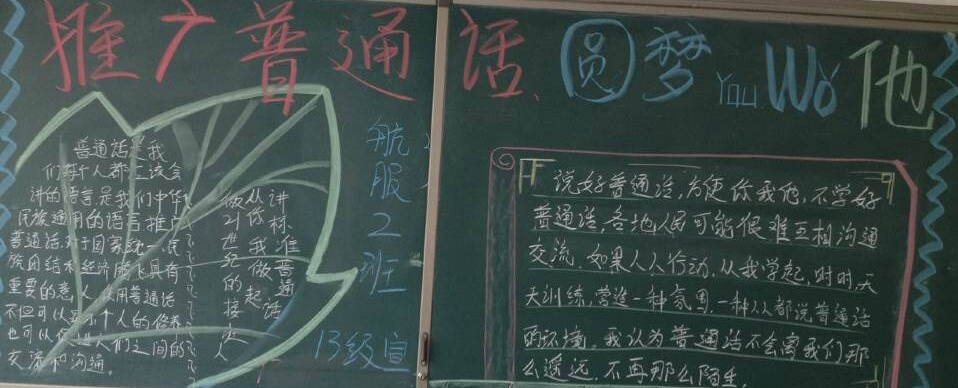 推广普通话、圆梦 You Wo 他
普通话是我
们每个人都应该会
讲的语言,是我们中华
民族通用的语言推广
普通话对于国家统一民
族团结和经济腾飞具有
重要的意义使用普通话
不但可以显示个人的修养
也可以促进人们之间的
交流和沟通。
讲标准普通话
从你我做起
做21世纪的接班人
航服2班
13级宣
说好普通话,方便你我他,不学好
普通话,各地人民可能很难互相沟通
交流,如果人人行动,从我学起,时时,天
天训练,营造一种氛围,一种人人都说普通话
的环境。我认为普通话不会离我们那
么遥远,不再那么陌生。